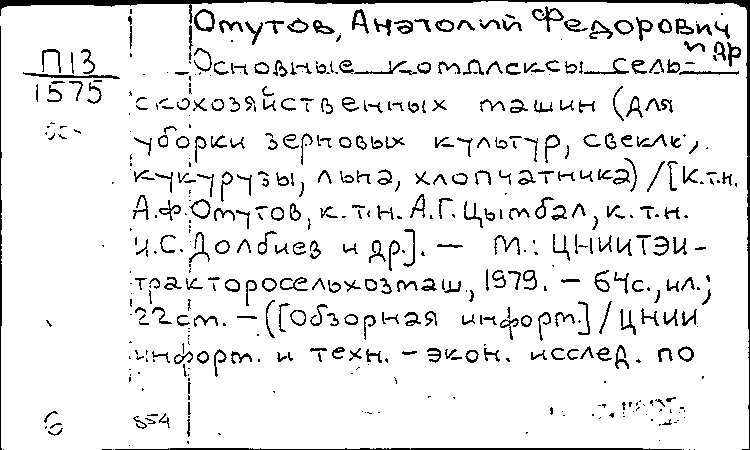 Омутов, Анатолий Федорович
и др
П13
1575
Основные комплексы сель-
скохозяйственных машин (для
уборки зерновых культур, свеклы,
кукурузы, льна, хлопчатника) / [к.т.н.
А.Ф. Омутов, к.т.н. А.Г. Цымбал, к.т.н.
И.С. Долбиев и др.]. — М.: ЦНИИТЭИ-
трактороcельхозмаш, 1979. — 64с., ил.;
22см. — ([Обзорная информ.] / ЦНИИ
информ. и техн. – экон. исслед. по
6
854